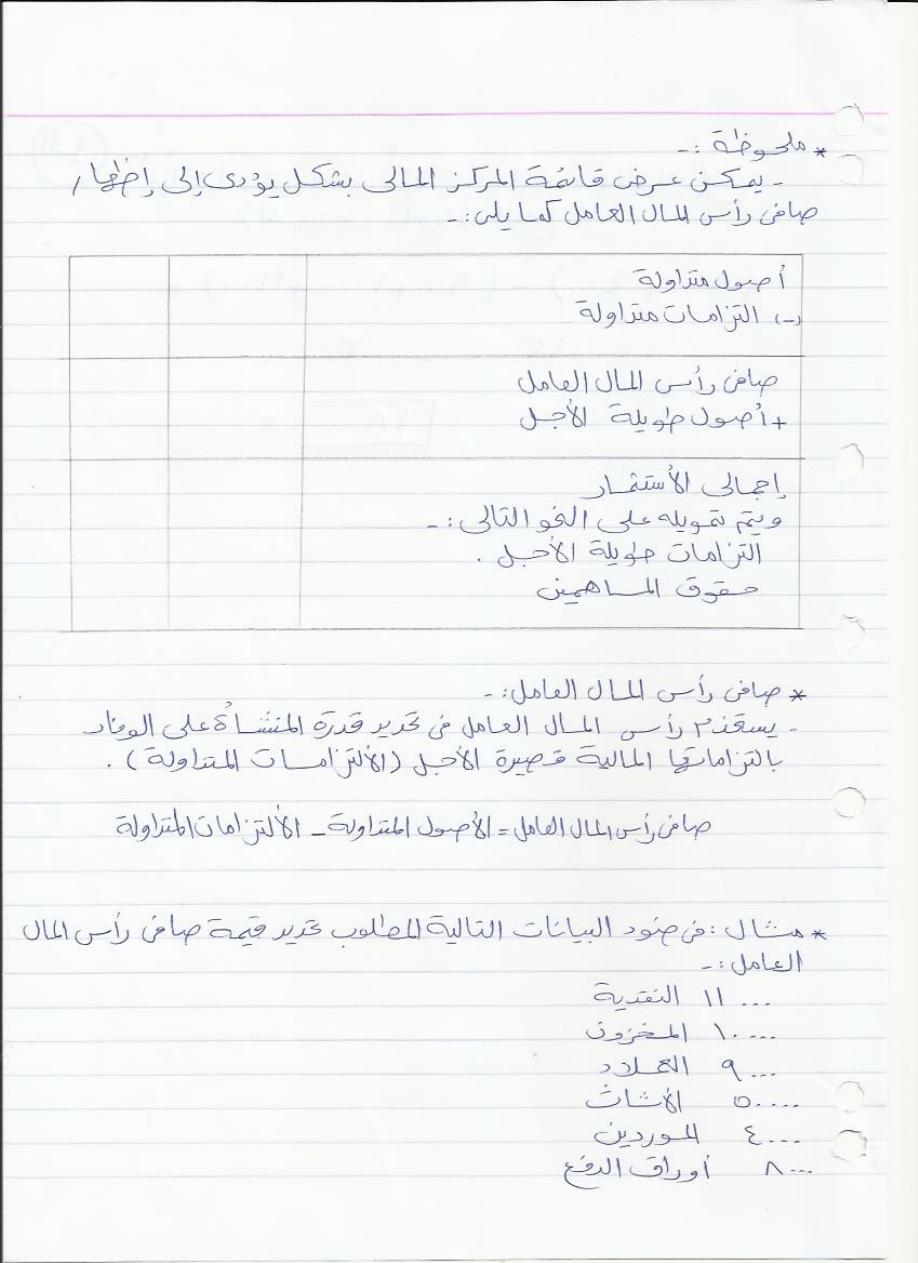 * ملحوظة :-
- يمكن عرض قائمة المركز المالى بشكل يؤدى إلى إظهار
صافى رأس المال العامل كما يلى :-
أصول متداولة
(-) التزامات متداولة
صافى رأس المال العامل
+ أصول طويلة الأجل
إجمالى الأستثمار
ويتم تمويله على النحو التالى :-
التزامات طويلة الأجل .
حقوق المساهمين
* صافى رأس المال العامل :-
- يستخدم رأس المال العامل فى تحديد قدرة المنشأة على الوفاء
بالتزاماتها المالية قصيرة الأجل (الألتزامات المتداولة) .
صافى رأس المال العامل = الأصول المتداولة - الألتزامات المتداولة
* مثال : فى ضوء البيانات التالية المطلوب تحديد قيمة صافى رأس المال
العامل :-
١١٠٠٠ النقدية
١٠٠٠٠ المخزون
٩٠٠٠ العملاء
٥٠٠٠٠ الأثاث
٤٠٠٠ الموردين
٨٠٠٠ أوراق الدفع